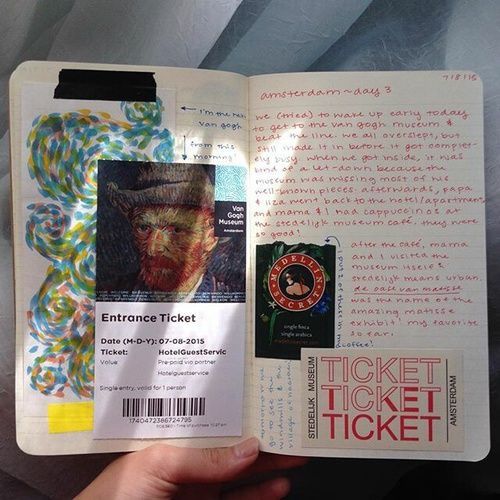 ← I'm the next
van gogh
from this
morning!
Van
Gogh
Museum
Amsterdam
Entrance Ticket
Date (M-D-Y): 07-08-2015
Ticket: HotelGuestServic
Value Pre-paid via partner
Hotelguestservice
Single entry, valid for 1 person
1740472386724795
7/8/15
amsterdam ~ day 3
we (tried) to wake up early today
to get to the van gogh museum &
beat the line. we all overslept, but
still made it in before it got complet-
ely busy. when we got inside, it was
kind of a let-down because the
museum was missing most of his
well-known pieces. afterwards, papa
& liza went back to the hotel/apartment,
and mama & I had cappuccinos at
the stedelijk museum café. they were
so good!
MEDELLIN
SECRET
single finca
single arabica
← I put 2 of these in my
coffee!
after the café, mama
and I visited the
museum itself &
stedelijk means urban.
de oase van matisse
was the name of the
amazing matisse
exhibit! my favorite
so far.
tomorrow we
go to see the
windmills & the
village of
STEDELIJK MUSEUM
TICKET
TICKET
TICKET
AMSTERDAM